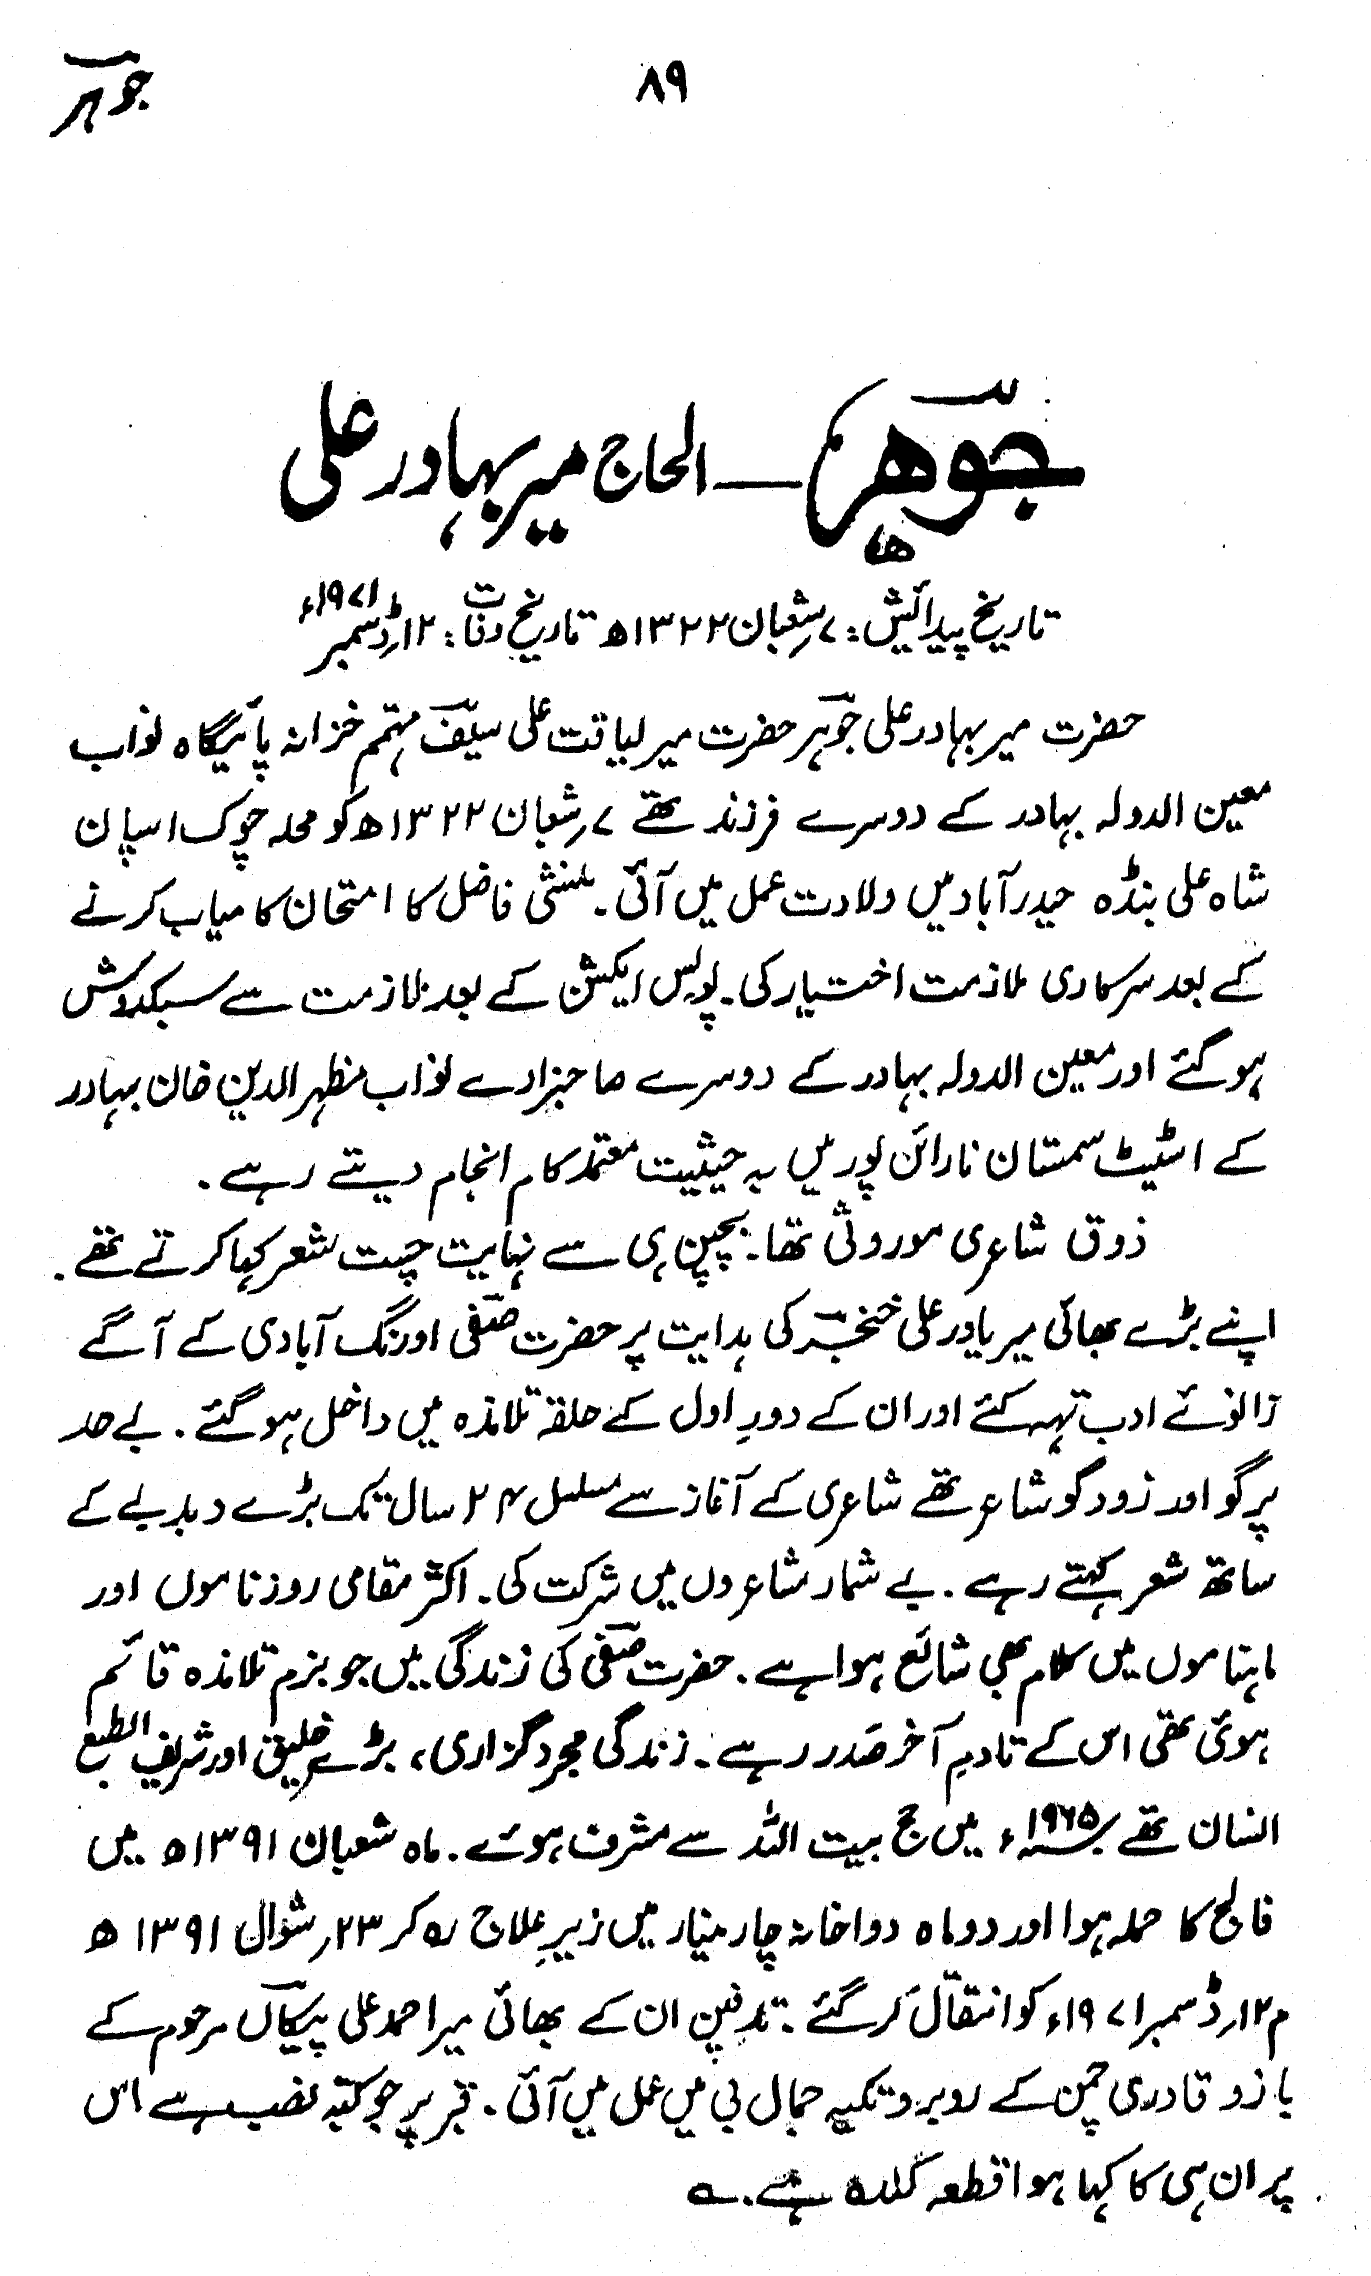 جوہر
۸۹
جوہر — الحاج میر بہادر علی
تاریخ پیدائش: ۷؍شعبان ۱۳۲۲ھ تاریخ وفات: ۱۲؍ڈسمبر ۱۹۷۱ء
حضرت میر بہادر علی جوہر حضرت میر لیاقت علی سیف مہتمم خزانہ پائیگاہ نواب
معین الدولہ بہادر کے دوسرے فرزند تھے ۷؍شعبان ۱۳۲۲ھ کو محلہ چوک اسپان
شاہ علی بنڈہ حیدرآباد میں ولادت عمل میں آئی۔ منشی فاضل کا امتحان کامیاب کرنے
کے بعد سرکاری ملازمت اختیار کی۔ پولیس ایکشن کے بعد ملازمت سے سبکدوش
ہوگئے اور معین الدولہ بہادر کے دوسرے صاحبزادے نواب مظہر الدین خان بہادر
کے اسٹیٹ سمستان نارائن پور میں بہ حیثیت معتمد کام انجام دیتے رہے۔
ذوق شاعری موروثی تھا۔ بچپن ہی سے نہایت چست شعر کہا کرتے تھے۔
اپنے بڑے بھائی میر یاور علی خنجر کی ہدایت پر حضرت صفی اورنگ آبادی کے آگے
زانوئے ادب تہہ کئے اور ان کے دورِ اول کے حلقہ تلامذہ میں داخل ہوگئے۔ بے حد
پرگو اور زودگو شاعر تھے شاعری کے آغاز سے مسلسل ۲۴ سال تک بڑے دبدبے کے
ساتھ شعر کہتے رہے۔ بے شمار مشاعروں میں شرکت کی۔ اکثر مقامی روزناموں اور
ماہناموں میں کلام بھی شائع ہوا ہے۔ حضرت صفی کی زندگی میں جو بزم تلامذہ قائم
ہوئی تھی اس کے تادمِ آخر صدر رہے۔ زندگی مجرد گزاری، بڑے خلیق اور شریف الطبع
انسان تھے ۱۹۶۵ء میں حج بیت اللہ سے مشرف ہوئے۔ ماہ شعبان ۱۳۹۱ھ میں
فالج کا حملہ ہوا اور دو ماہ دواخانہ چارمینار میں زیرِ علاج رہ کر ۲۳؍شوال ۱۳۹۱ھ
م ۱۲؍ڈسمبر ۱۹۷۱ء کو انتقال کرگئے۔ تدفین ان کے بھائی میر احمد علی پیکاں مرحوم کے
بازو قادری چمن کے روبرو تکیہ جمال بی میں عمل میں آئی۔ قبر پر جو کتبہ نصب ہے اس
پر ان ہی کا کہا ہوا قطعہ کندہ ہے۔ ؎